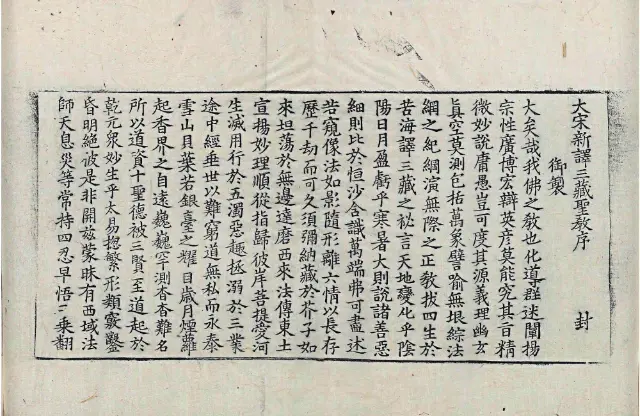 大宋新譯三藏聖教序 封
御製
大矣哉我佛之教也化導群迷闡揚
宗性廣博宏辯英彥莫能究其旨精
微妙說庸愚豈可度其源義理幽玄
真空莫測包括萬象譬喻無垠綜法
網之紀綱演無際之正教拔四生於
苦海譯三藏之祕言天地變化乎陰
陽日月盈虧乎寒暑大則說諸善惡
細則比於恒沙含識萬端弗可盡述
若窺像法如影隨形離六情以長存
歷千劫而可久須彌納藏於芥子如
來坦蕩於無邊達磨西來法傳東土
宣揚妙理順從指歸彼岸菩提愛河
生滅用行於五濁惡趣拯溺於三業
途中經垂世以難窮道無私而永泰
雪山貝葉若銀臺之耀目歲月煙蘿
起香界之自遠巍巍罕測杳杳難名
所以道資十聖德被三賢至道起於
乾元眾妙生乎太易揔繁形類竅鑿
昏明絕彼是非開茲蒙昧有西域法
師天息災等常持四忍早悟三乘翻